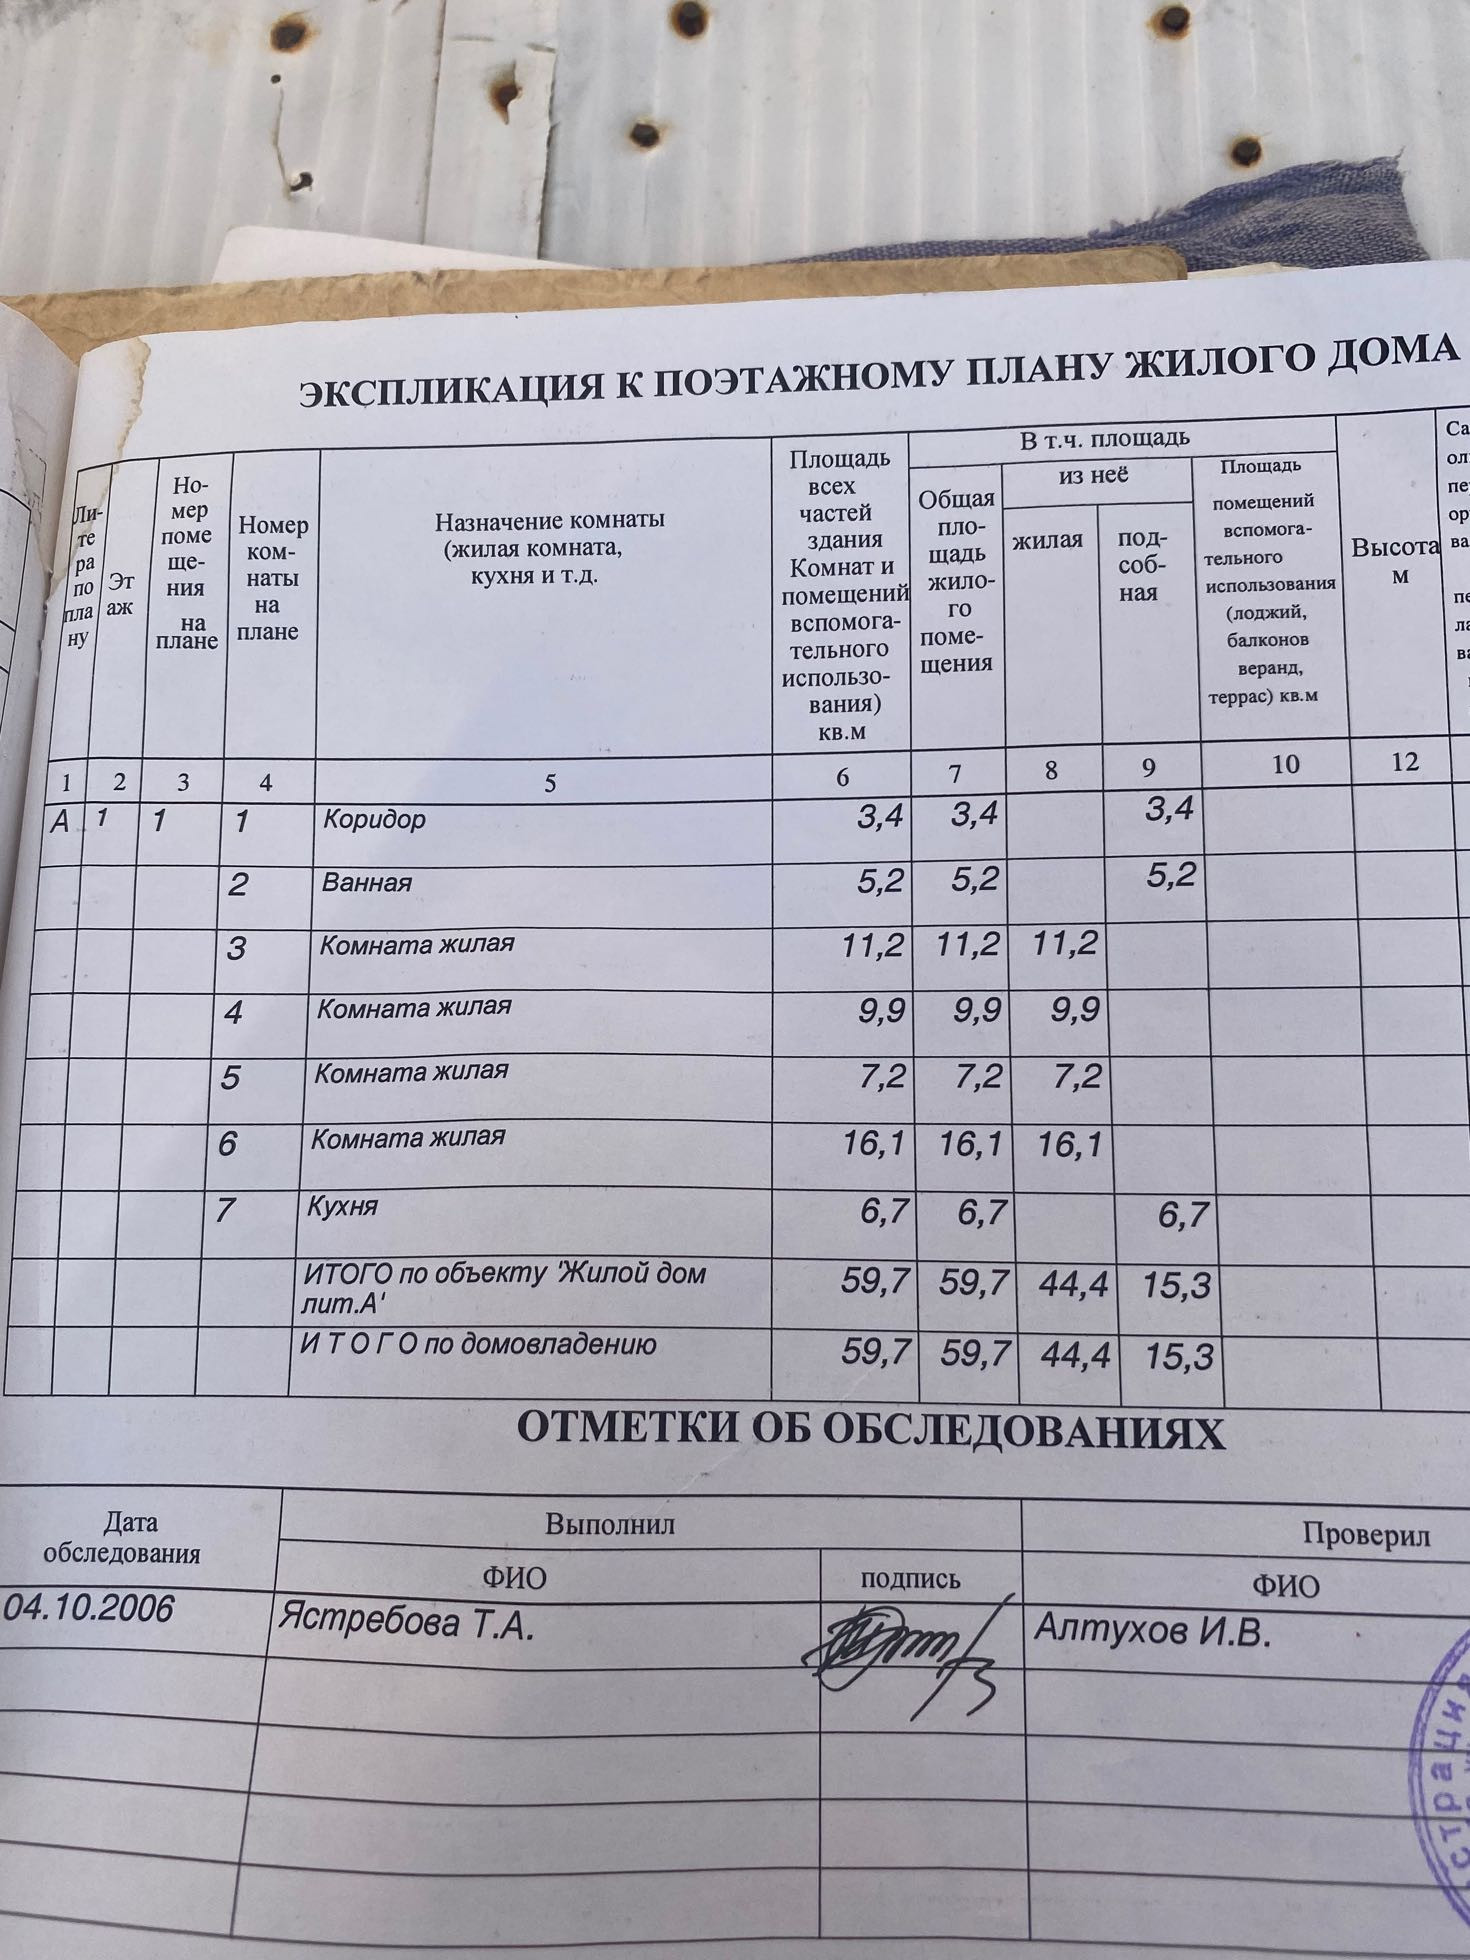 ЭКСПЛИКАЦИЯ К ПОЭТАЖНОМУ ПЛАНУ ЖИЛОГО ДОМА
Ли-
те
ра
по
пла
ну
Эт
аж
Но-
мер
поме
ще-
ния
на
плане
Номер
ком-
наты
на
плане
Назначение комнаты
(жилая комната,
кухня и т.д.
Площадь
всех
частей
здания
Комнат и
помещений
вспомога-
тельного
использо-
вания)
кв.м
В т.ч. площадь
Общая
пло-
щадь
жило-
го
поме-
щения
из неё
жилая
под-
соб-
ная
Площадь
помещений
вспомога-
тельного
использования
(лоджий,
балконов
веранд,
террас) кв.м
Высота
м
Са
ол
пе
ор
ва
пе
ла
ва
1 2 3 4 5 6 7 8 9 10 12
А 1 1 1 Коридор 3,4 3,4 3,4
2 Ванная 5,2 5,2 5,2
3 Комната жилая 11,2 11,2 11,2
4 Комната жилая 9,9 9,9 9,9
5 Комната жилая 7,2 7,2 7,2
6 Комната жилая 16,1 16,1 16,1
7 Кухня 6,7 6,7 6,7
ИТОГО по объекту 'Жилой дом
лит.А' 59,7 59,7 44,4 15,3
И Т О Г О по домовладению 59,7 59,7 44,4 15,3
ОТМЕТКИ ОБ ОБСЛЕДОВАНИЯХ
Дата
обследования
Выполнил
Проверил
ФИО подпись ФИО
04.10.2006 Ястребова Т.А. Алтухов И.В.
страция